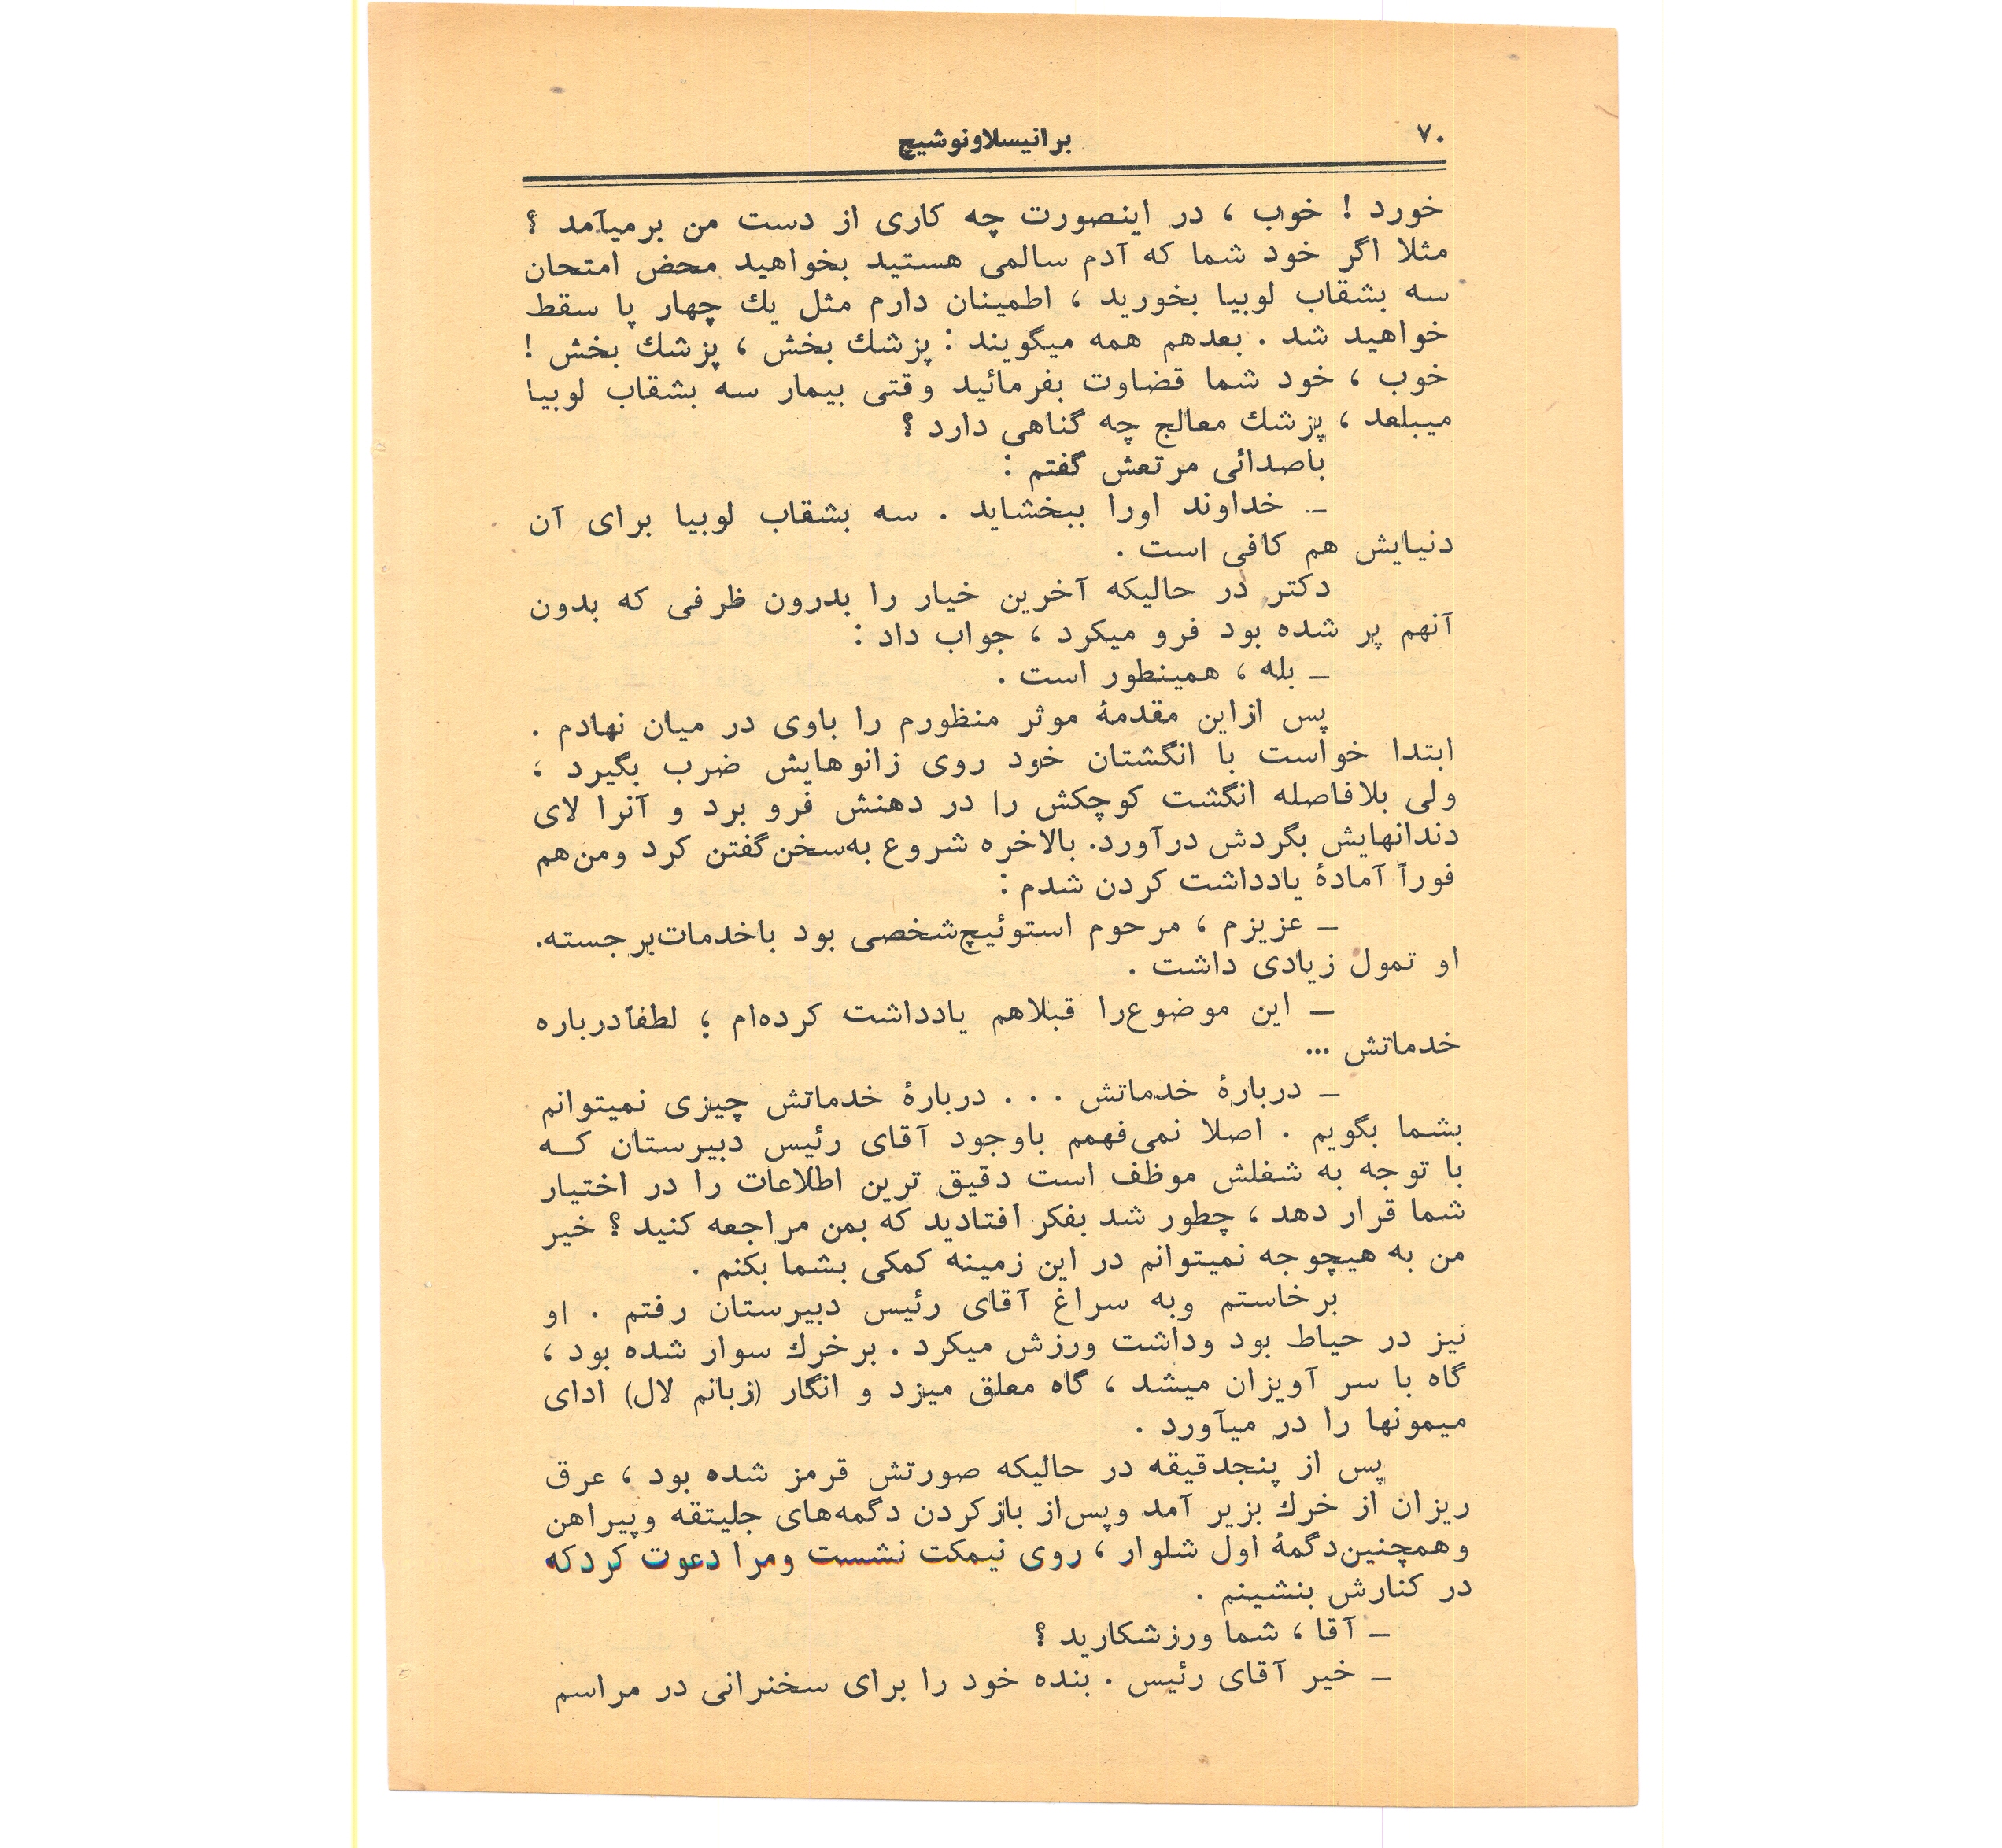 ۷۰
برانیسلاونوشیچ
خورد ! خوب ، در اینصورت چه کاری از دست من برمیآمد ؟
مثلا اگر خود شما که آدم سالمی هستید بخواهید محض امتحان
سه بشقاب لوبیا بخورید ، اطمینان دارم مثل یك چهار پا سقط
خواهید شد . بعدهم همه میگویند : پزشك بخش ، پزشك بخش !
خوب ، خود شما قضاوت بفرمائید وقتی بیمار سه بشقاب لوبیا
میبلعد ، پزشك معالج چه گناهی دارد ؟
باصدائی مرتعش گفتم :
ـ خداوند اورا ببخشاید . سه بشقاب لوبیا برای آن
دنیایش هم کافی است .
دکتر در حالیکه آخرین خیار را بدرون ظرفی که بدون
آنهم پر شده بود فرو میکرد ، جواب داد :
ـ بله ، همینطور است .
پس ازاین مقدمهٔ موثر منظورم را باوی در میان نهادم .
ابتدا خواست با انگشتان خود روی زانوهایش ضرب بگیرد ،
ولی بلافاصله انگشت کوچکش را در دهنش فرو برد و آنرا لای
دندانهایش بگردش درآورد. بالاخره شروع به‌سخن‌گفتن کرد ومن‌هم
فوراً آمادهٔ یادداشت کردن شدم :
ـ عزیزم ، مرحوم استوئیچ‌شخصی بود باخدمات‌برجسته.
او تمول زیادی داشت .
ـ این موضوع‌را قبلاهم یادداشت کرده‌ام ؛ لطفاًدرباره
خدماتش ...
ـ دربارهٔ خدماتش . . . دربارهٔ خدماتش چیزی نمیتوانم
بشما بگویم . اصلا نمی‌فهمم باوجود آقای رئیس دبیرستان کـه
با توجه به شغلش موظف است دقیق ترین اطلاعات را در اختیار
شما قرار دهد ، چطور شد بفکر افتادید که بمن مراجعه کنید ؟ خیر
من به هیچوجه نمیتوانم در این زمینه کمکی بشما بکنم .
برخاستم وبه سراغ آقای رئیس دبیرستان رفتم . او
نیز در حیاط بود وداشت ورزش میکرد . برخرك سوار شده بود ،
گاه با سر آویزان میشد ، گاه معلق میزد و انگار (زبانم لال) ادای
میمونها را در میآورد .
پس از پنجدقیقه در حالیکه صورتش قرمز شده بود ، عرق
ریزان از خرك بزیر آمد وپس‌از بازکردن دگمه‌های جلیتقه وپیراهن
وهمچنین‌دگمهٔ اول شلوار ، روی نیمکت نشست ومرا دعوت کردکه
در کنارش بنشینم .
ـ آقا ، شما ورزشکارید ؟
ـ خیر آقای رئیس . بنده خود را برای سخنرانی در مراسم